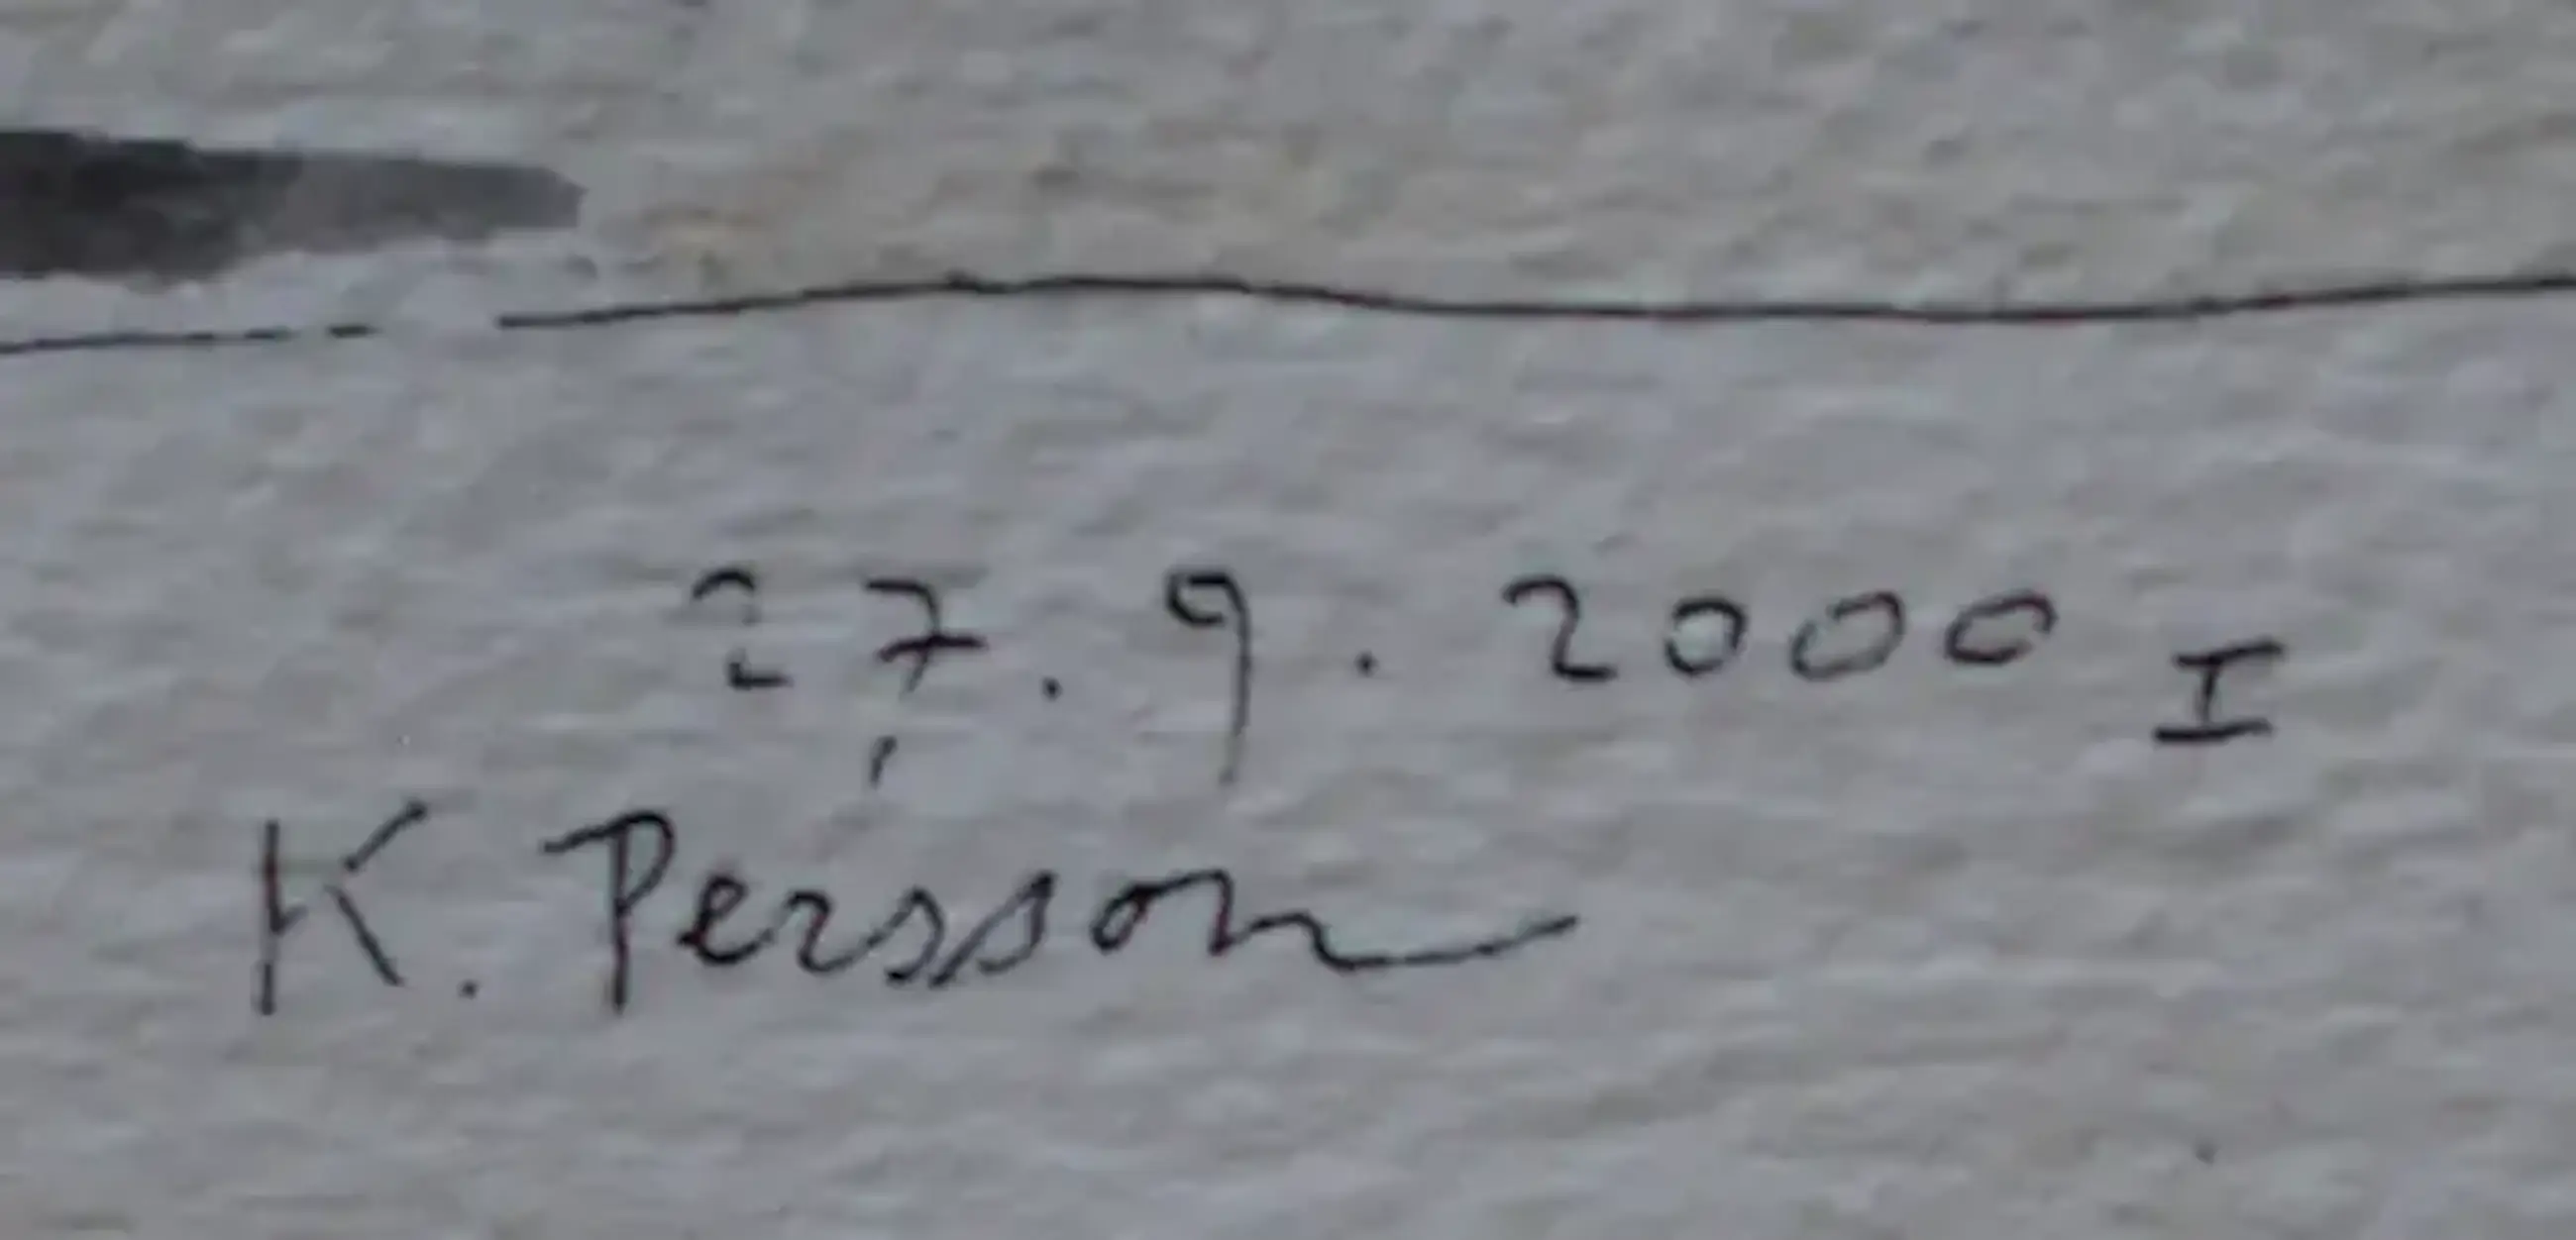 27.9.2000 I
K. Persson